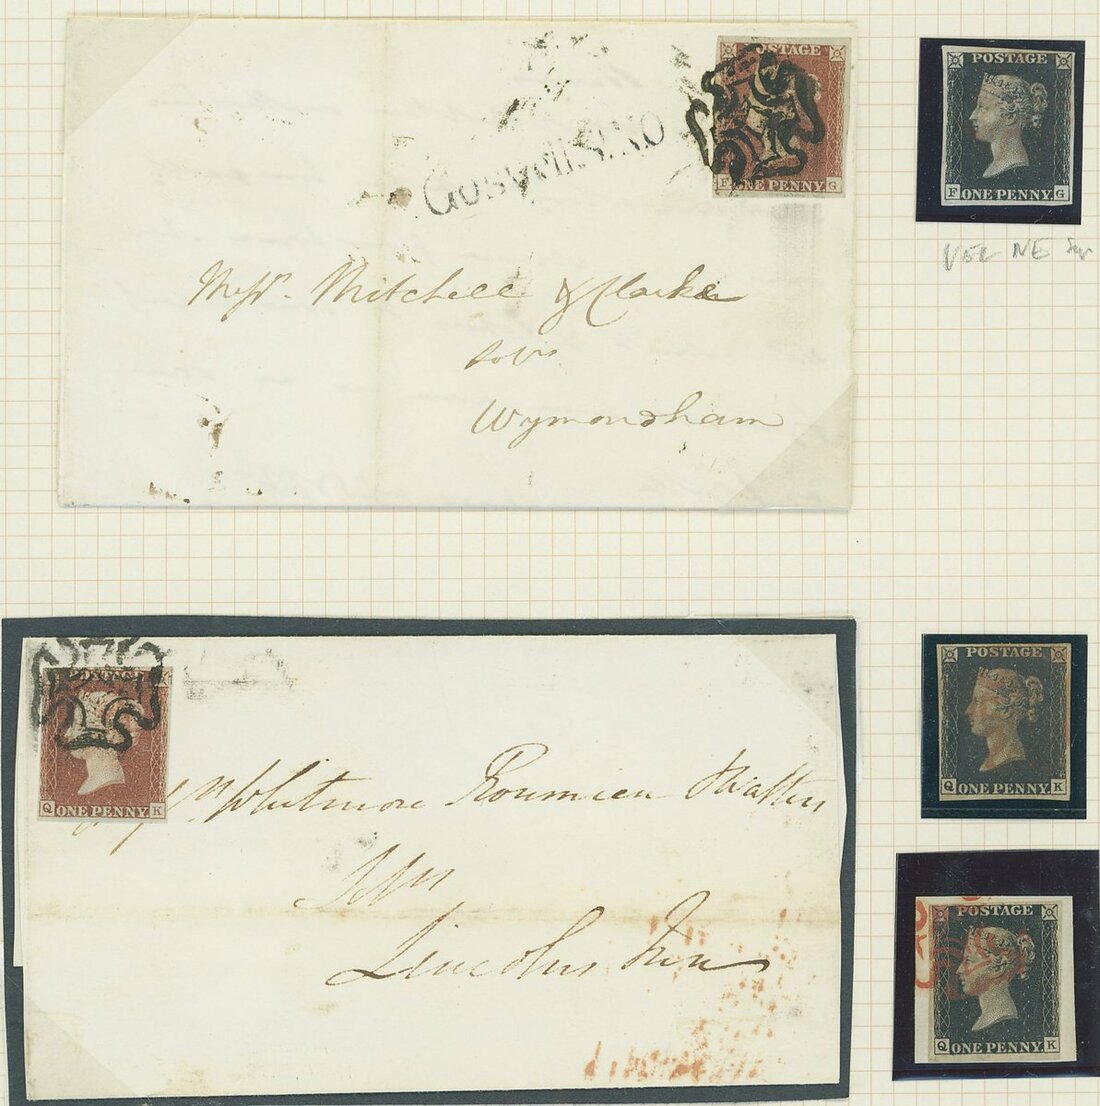 POSTAGE
F ONE PENNY G
GOSWELL St. RD
Messrs. Mitchell & Clarke
Solrs
Wymondham
POSTAGE
F ONE PENNY G
NE
POSTAGE
Q ONE PENNY K
Whitmore Roumieu Walters
Lincolns Inn
POSTAGE
Q ONE PENNY K
POSTAGE
Q ONE PENNY K